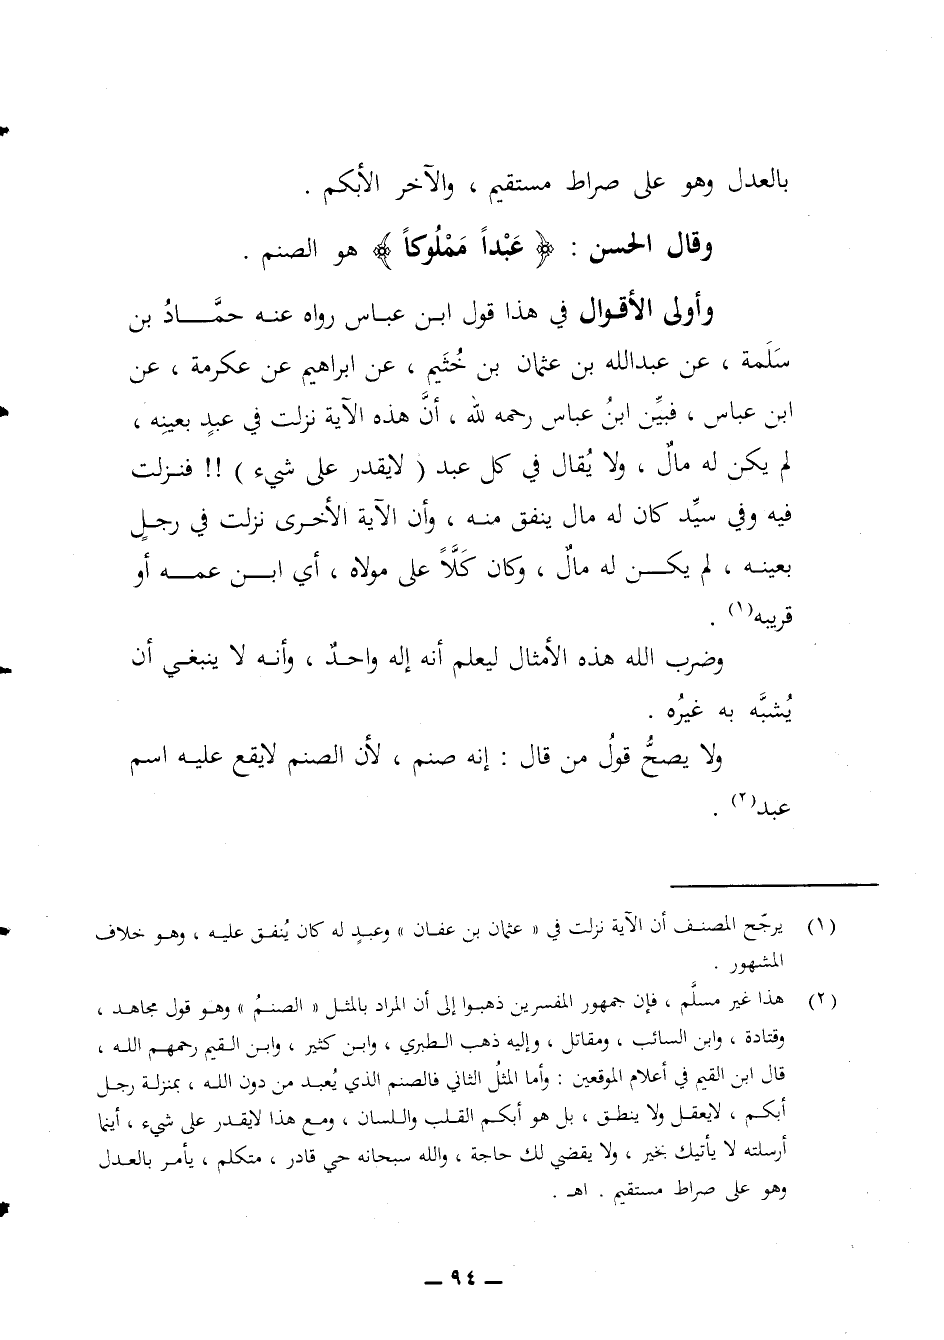 بالعدل وهو على صراط مستقيم ، والآخر الأبكم .
وقال الحسن : ﴿ عَبْداً مَمْلُوكاً ﴾ هو الصنم .
وأولى الأقوال في هذا قول ابن عباس رواه عنه حمَّادُ بن
سَلَمة ، عن عبدالله بن عثمان بن خُثَيم ، عن ابراهيم عن عكرمة ، عن
ابن عباس ، فبيِّن ابنُ عباس رحمه لله ، أنَّ هذه الآية نزلت في عبدٍ بعينِه ،
لم يكن له مالٌ ، ولا يُقال في كل عبد ( لايقدر على شيء ) !! فنزلت
فيه وفي سيِّد كان له مال ينفق منه ، وأن الآية الأخرى نزلت في رجلٍ
بعينه ، لم يكن له مالٌ ، وكان كَلَّاً على مولاه ، أي ابن عمه أو
قريبه(١) .
وضرب الله هذه الأمثال ليعلم أنه إله واحدٌ ، وأنه لا ينبغي أن
يُشبَّه به غيرُه .
ولا يصحُّ قولُ من قال : إنه صنم ، لأن الصنم لايقع عليه اسم
عبد(٢) .
(١) يرجّح المصنف أن الآية نزلت في « عثمان بن عفان » وعبدٍ له كان يُنفق عليه ، وهو خلاف
المشهور .
(٢) هذا غير مسلَّم ، فإن جمهور المفسرين ذهبوا إلى أن المراد بالمثل « الصنمُ » وهو قول مجاهد ،
وقتادة ، وابن السائب ، ومقاتل ، وإليه ذهب الطبري ، وابن كثير ، وابن القيم رحمهم الله ،
قال ابن القيم في أعلام الموقعين : وأما المثلُ الثاني فالصنم الذي يُعبد من دون الله ، بمنزلة رجل
أبكم ، لايعقل ولا ينطق ، بل هو أبكم القلب واللسان ، ومع هذا لايقدر على شيء ، أينما
أرسلته لا يأتيك بخير ، ولا يقضي لك حاجة ، والله سبحانه حي قادر ، متكلم ، يأمر بالعدل
وهو على صراط مستقيم . اهـ .
– ٩٤ –